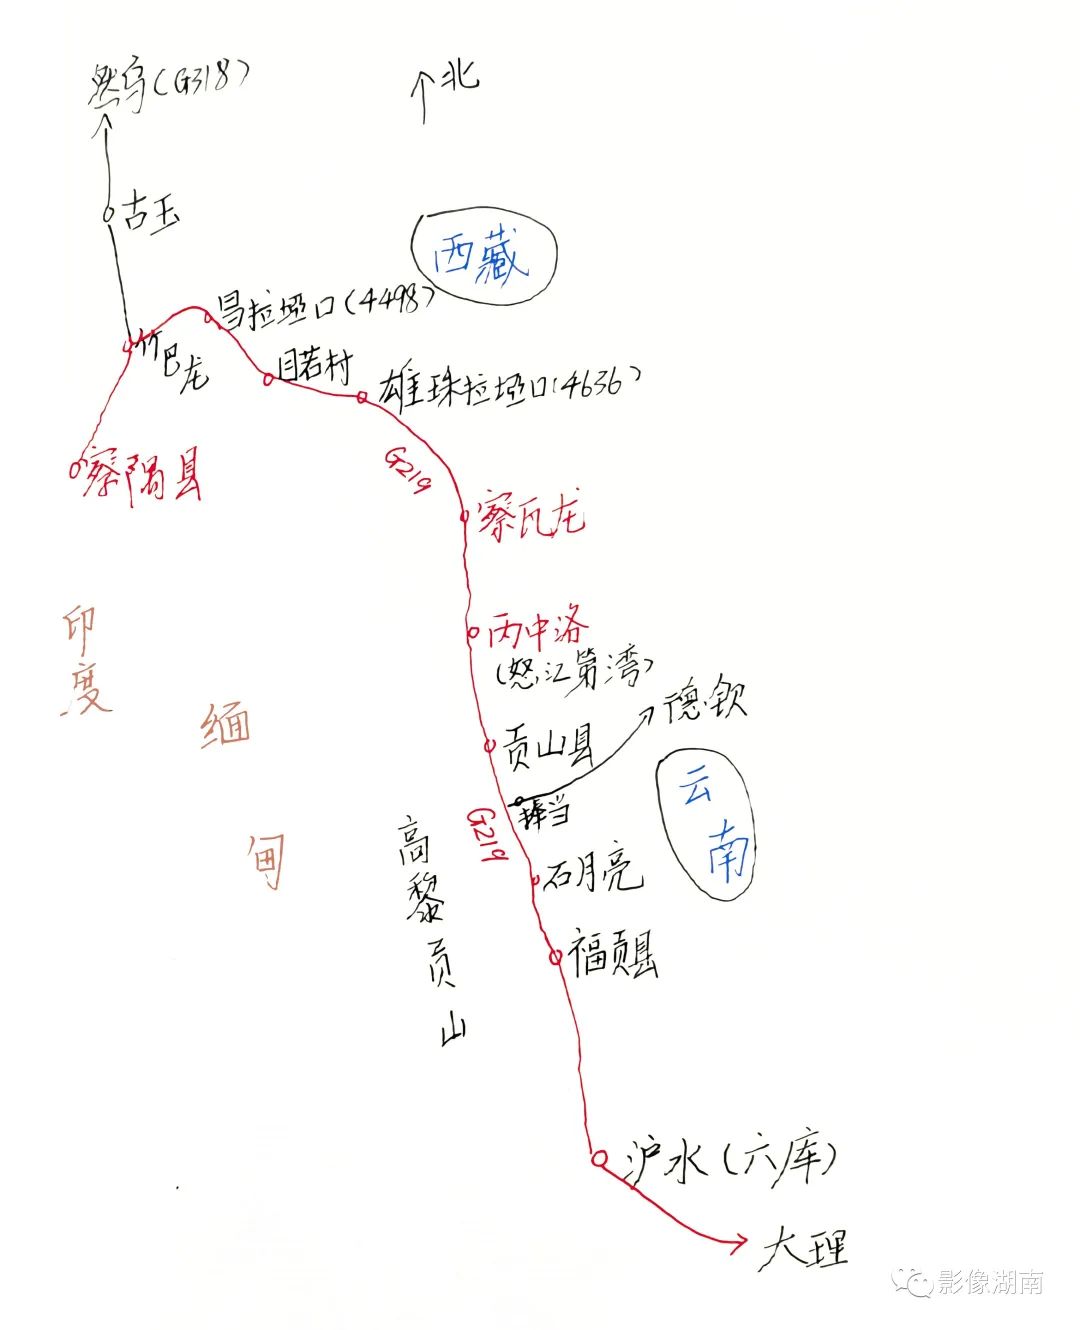 然乌(G318)
北
古玉
西藏
昌拉垭口(4498)
竹巴龙
目若村
雄珠拉垭口(4636)
G219
察隅县
察瓦龙
丙中洛
(怒江第湾)
印度
缅甸
贡山县
德钦
捧当
G219
云南
高黎贡山
石月亮
福贡县
沪水(六库)
大理
影像湖南